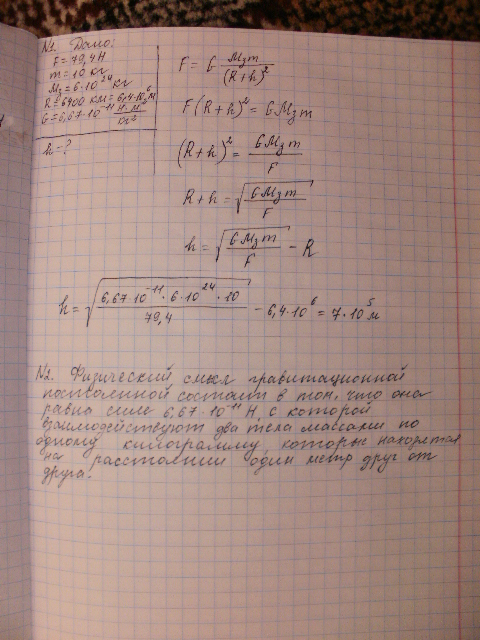 №1. Дано:
F = 79,4 Н
m = 10 кг
Mз = 6·10²⁴ кг
R = 6400 км = 6,4·10⁶ м
G = 6,67·10⁻¹¹ Н·м²/кг²
h = ?
F = G Mзm/(R+h)²
F(R+h)² = GMзm
(R+h)² = GMзm/F
R+h = √(GMзm/F)
h = √(GMзm/F) - R
h = √(6,67·10⁻¹¹·6·10²⁴·10/79,4) - 6,4·10⁶ = 7·10⁵ м
№2. Физический смысл гравитационной
постоянной состоит в том, что она
равна силе 6,67·10⁻¹¹ Н, с которой
взаимодействуют два тела массами по
одному килограмму, которые находятся
на расстоянии один метр друг от
друга.